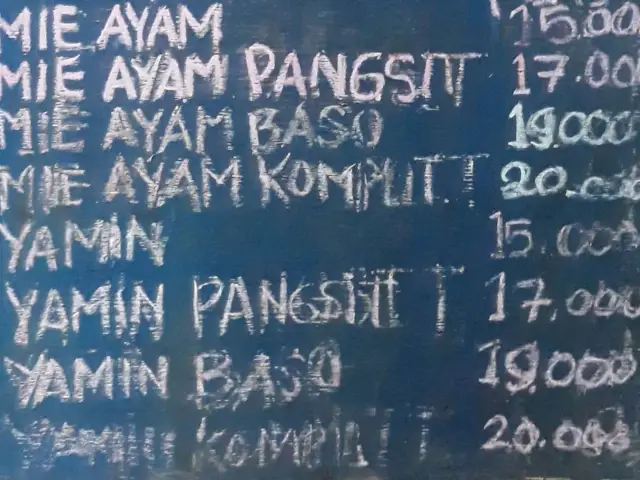 MIE AYAM 15.00
MIE AYAM PANGSIT 17.00
MIE AYAM BASO 19.000
MIE AYAM KOMPLIT 20.000
YAMIN 15.000
YAMIN PANGSIT 17.000
YAMIN BASO 19.000
YAMIN KOMPLIT 20.000